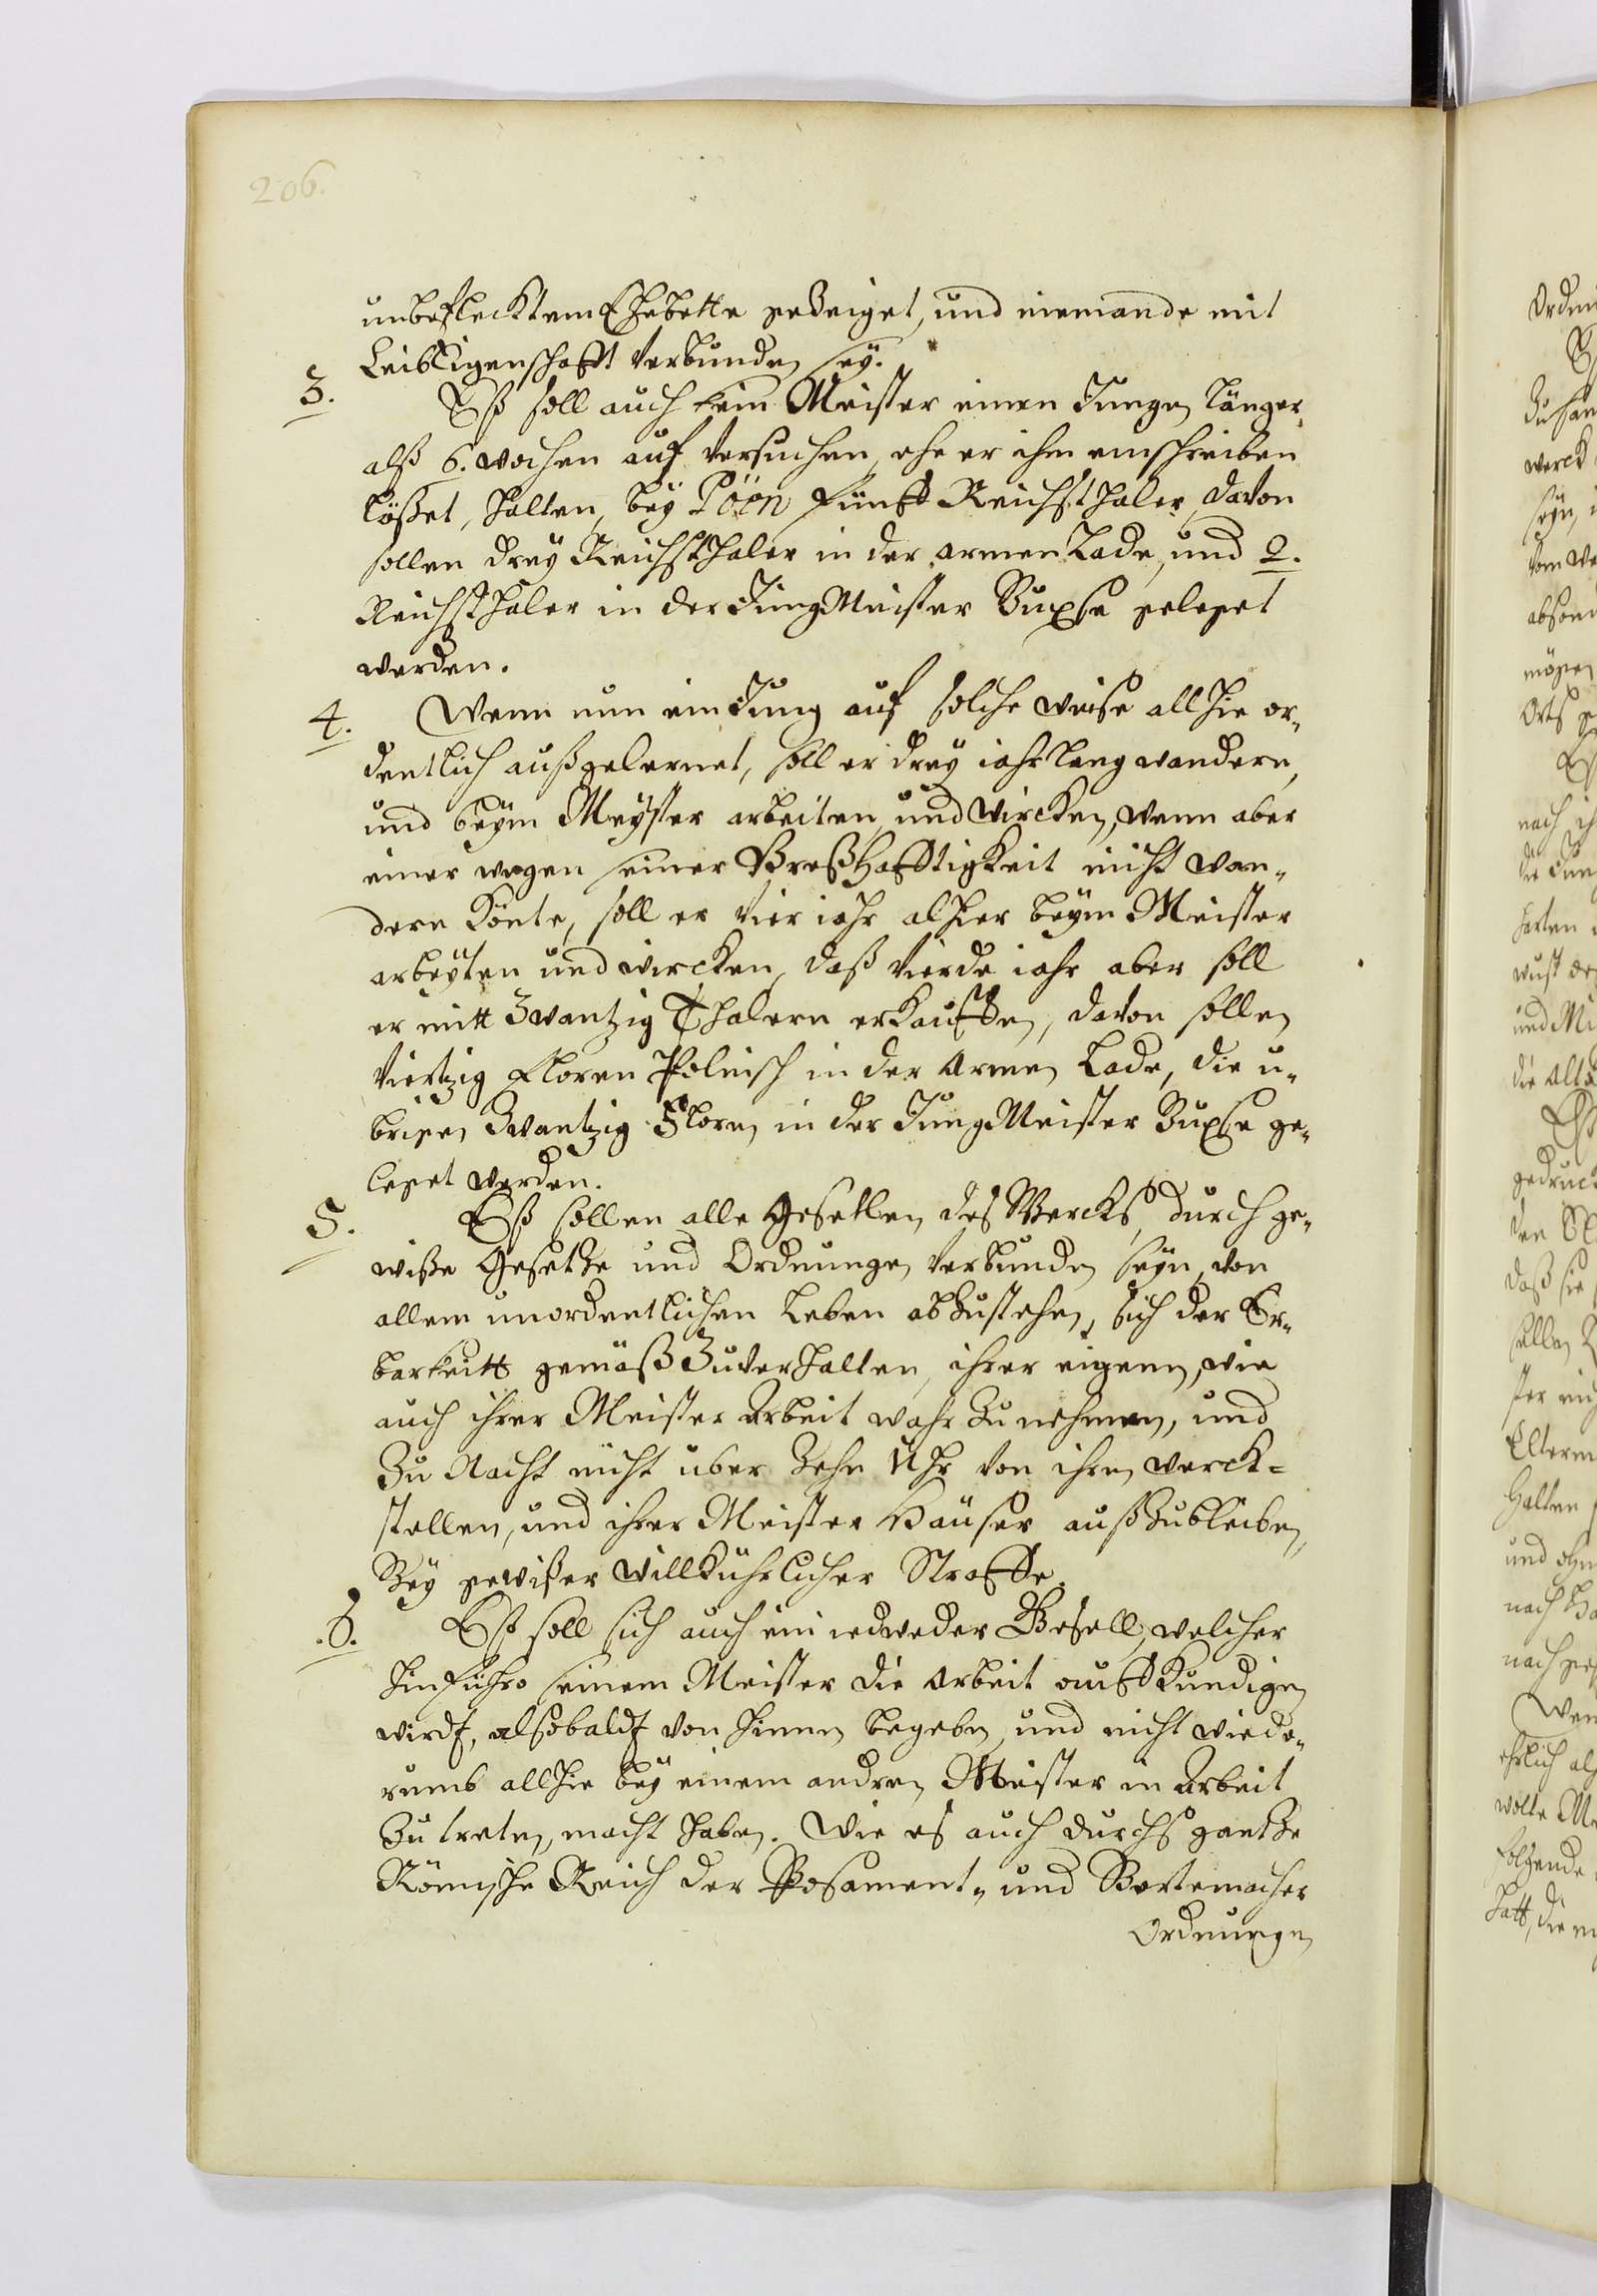 206.
unbeflecktem Ehebette gezeiget, und niemande mit
LeibEigenschafft verbunden sey.
3. Eß soll auch kein Meister einen Jungen länger,
alß 6. wochen auf versuchen, ehe er ihm einschreiben
läßet, halten, bey Pöön Fünff Reichsthaler, davon
sollen drey Reichsthaler in der armen Lade, und 2.
Reichsthaler in der JungMeister Buxse geleget
werden.
4. Wenn nun ein Jung auf solche weise allhie or„
dentlich außgelernet, soll er drey iahr lang wandern,
und beym Meyster arbeiten und wircken, wenn aber
einer wegen seiner Breßhafftigkeit nicht wan„
dern könte, soll er vier iahr alhier beym Meister
arbeyten und wircken, daß vierde iahr aber soll
er mitt Zwantzig Thalern erkauffen, davon sollen
viertzig Floren Polnisch in der Armen Lade, die u„
brigen Zwantzig Floren in der JungMeister Buxse ge„
leget werden.
5. Eß sollen alle Gesellen des Wercks, durch ge„
wiße Gesetze und Ordnungen verbunden seyn, von
allem unordentlichen Leben abzustehen, sich der Er„
barkeitt gemäß Zuverhalten, ihrer eigenen, wie
auch ihrer Meister Arbeit wahr zu nehmen, und
Zu Nacht nicht über Zehn Uhr von ihren werck=
stellen, und ihrer Meister Häuser außzubleiben,
Bey gewißer willkührlicher Straffe.
.6. Eß soll sich auch ein iedweder Gesell, welcher
hinführo seinem Meister die Arbeit auffkündigen
wirdt, alsobaldt von hinnen begeben, und nicht wiede„
rumb allhie bey einem andren Meister in Arbeit
Zu treten, macht haben. Wie es auch durchs gantze
Römische Reich der Posament„ und Bortemacher
Ordnungen